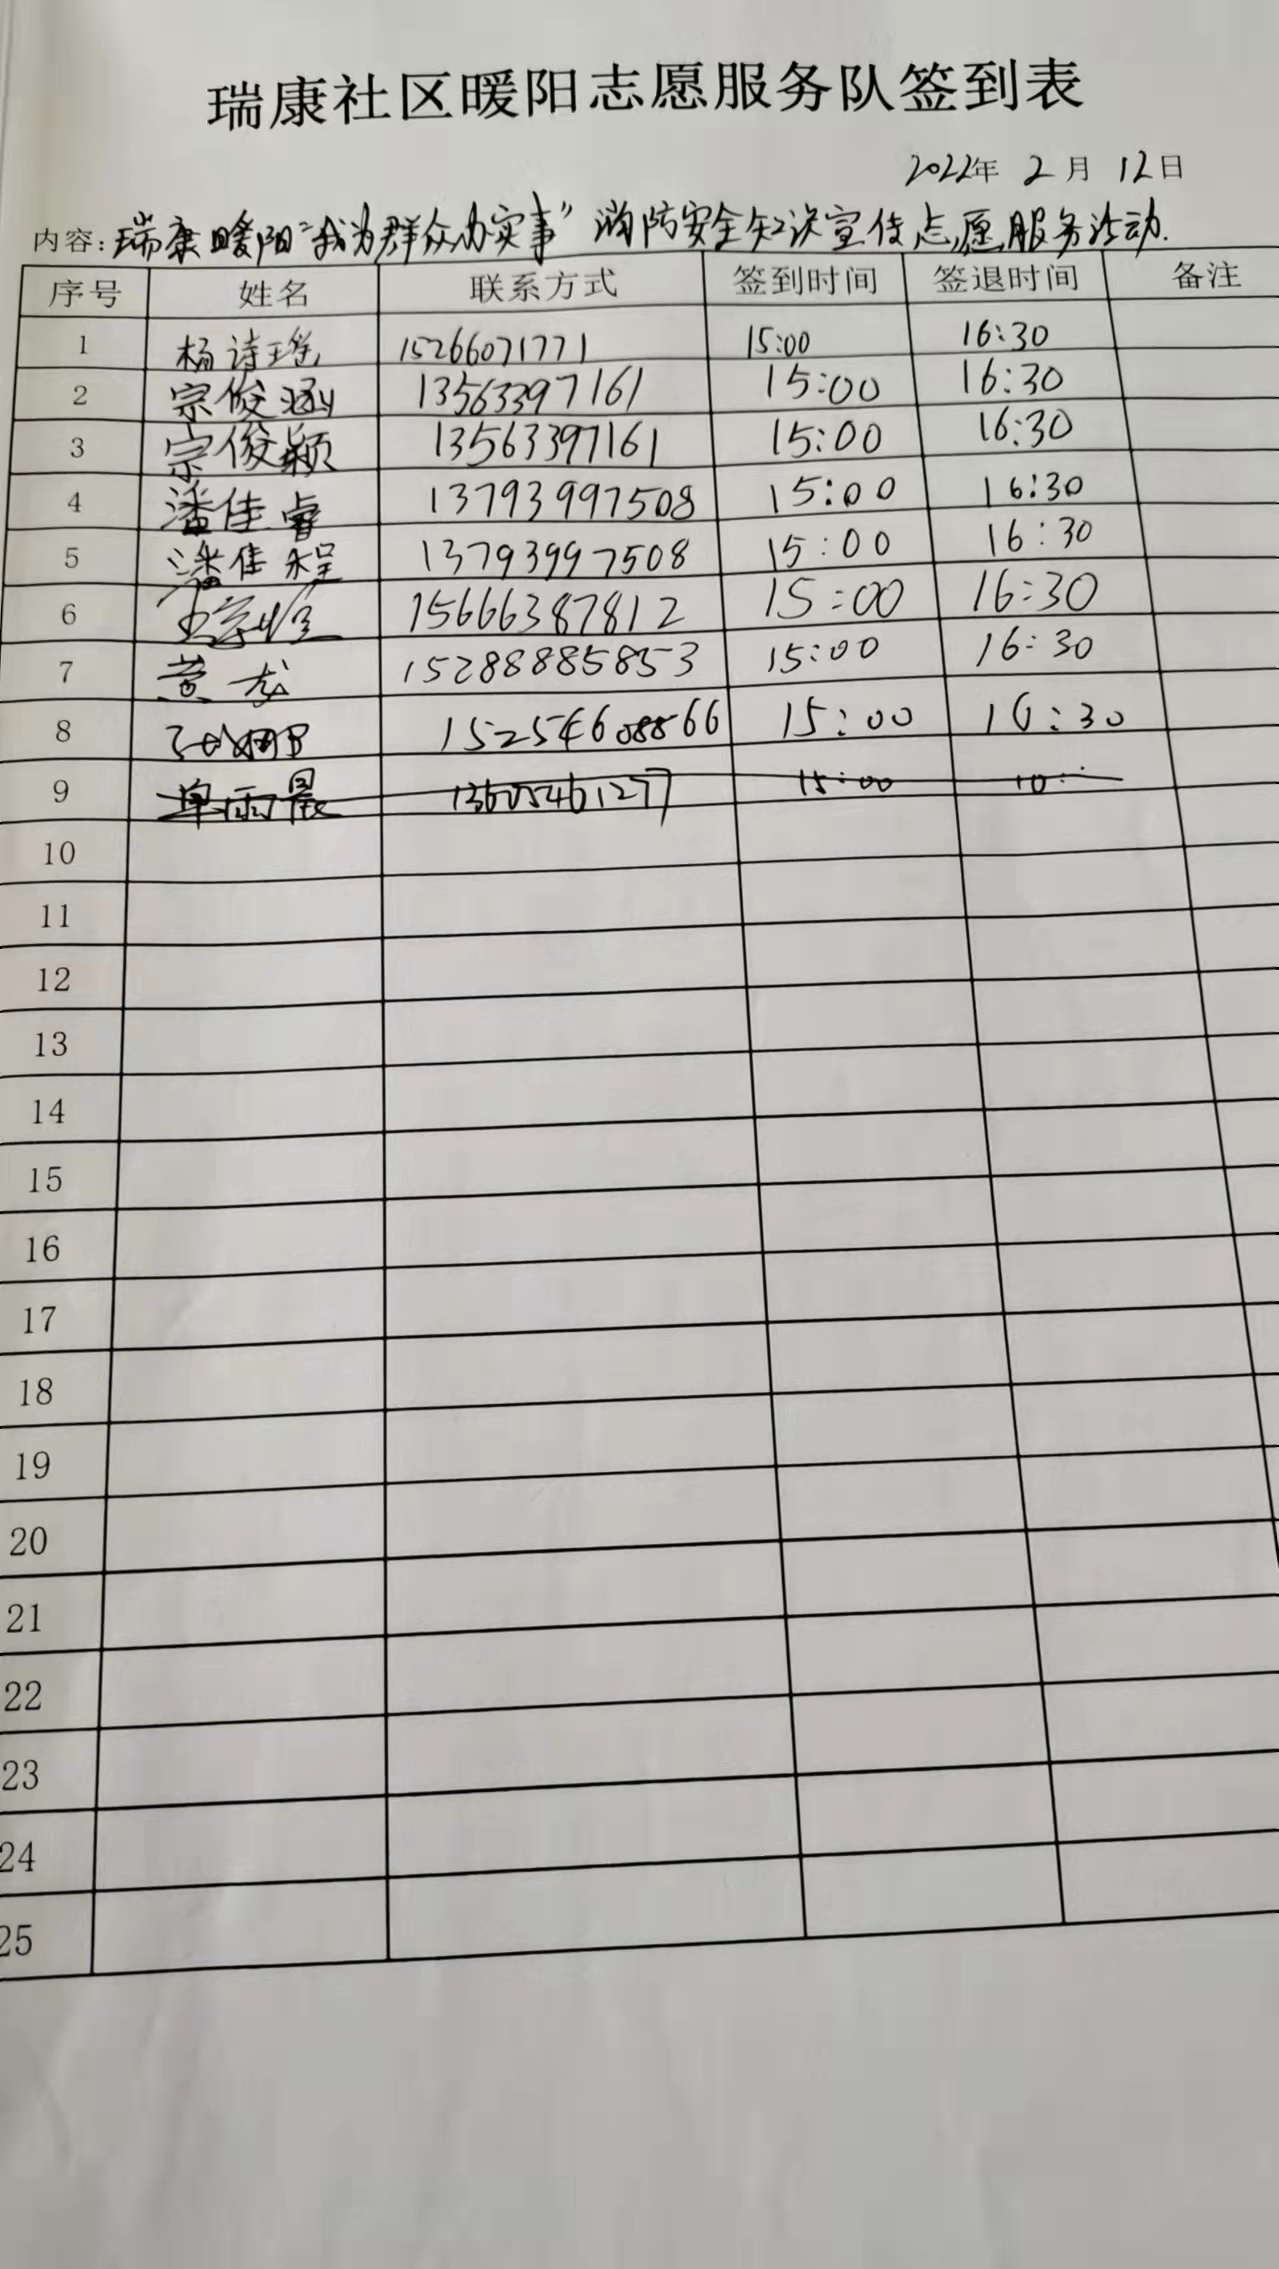 瑞康社区暖阳志愿服务队签到表
2022年 2月 12日
内容：瑞康暖阳“我为群众办实事”消防安全知识宣传志愿服务活动.
序号 姓名 联系方式 签到时间 签退时间 备注
1 杨诗瑶 15266071771 15:00 16:30
2 宗俊涵 13563397161 15:00 16:30
3 宗俊颖 13563397161 15:00 16:30
4 潘佳睿 13793997508 15:00 16:30
5 潘佳程 13793997508 15:00 16:30
6 15666387812 15:00 16:30
7 黄龙 15288885853 15:00 16:30
8 15:00 16:30
9 单雨晨 13605461277 15:00
10
11
12
13
14
15
16
17
18
19
20
21
22
23
24
25